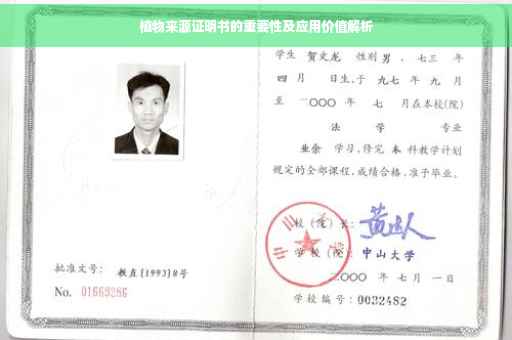 植物来源证明书的重要性及应用价值解析
学生 贺文龙 性别 男 、七三 年
四 月 日生,于 九七 年 九 月
至 二〇〇〇 年 七 月在本校(院)
法 学 专业
业余 学习,修完 本 科教学计划
规定的全部课程,成绩合格,准予毕业。
校(院)长:
学校(院): 中山大学
二〇〇〇 年 七 月 一 日
批准文号: 教直[1993]8号
No. 01669286
学校编号: 0032482